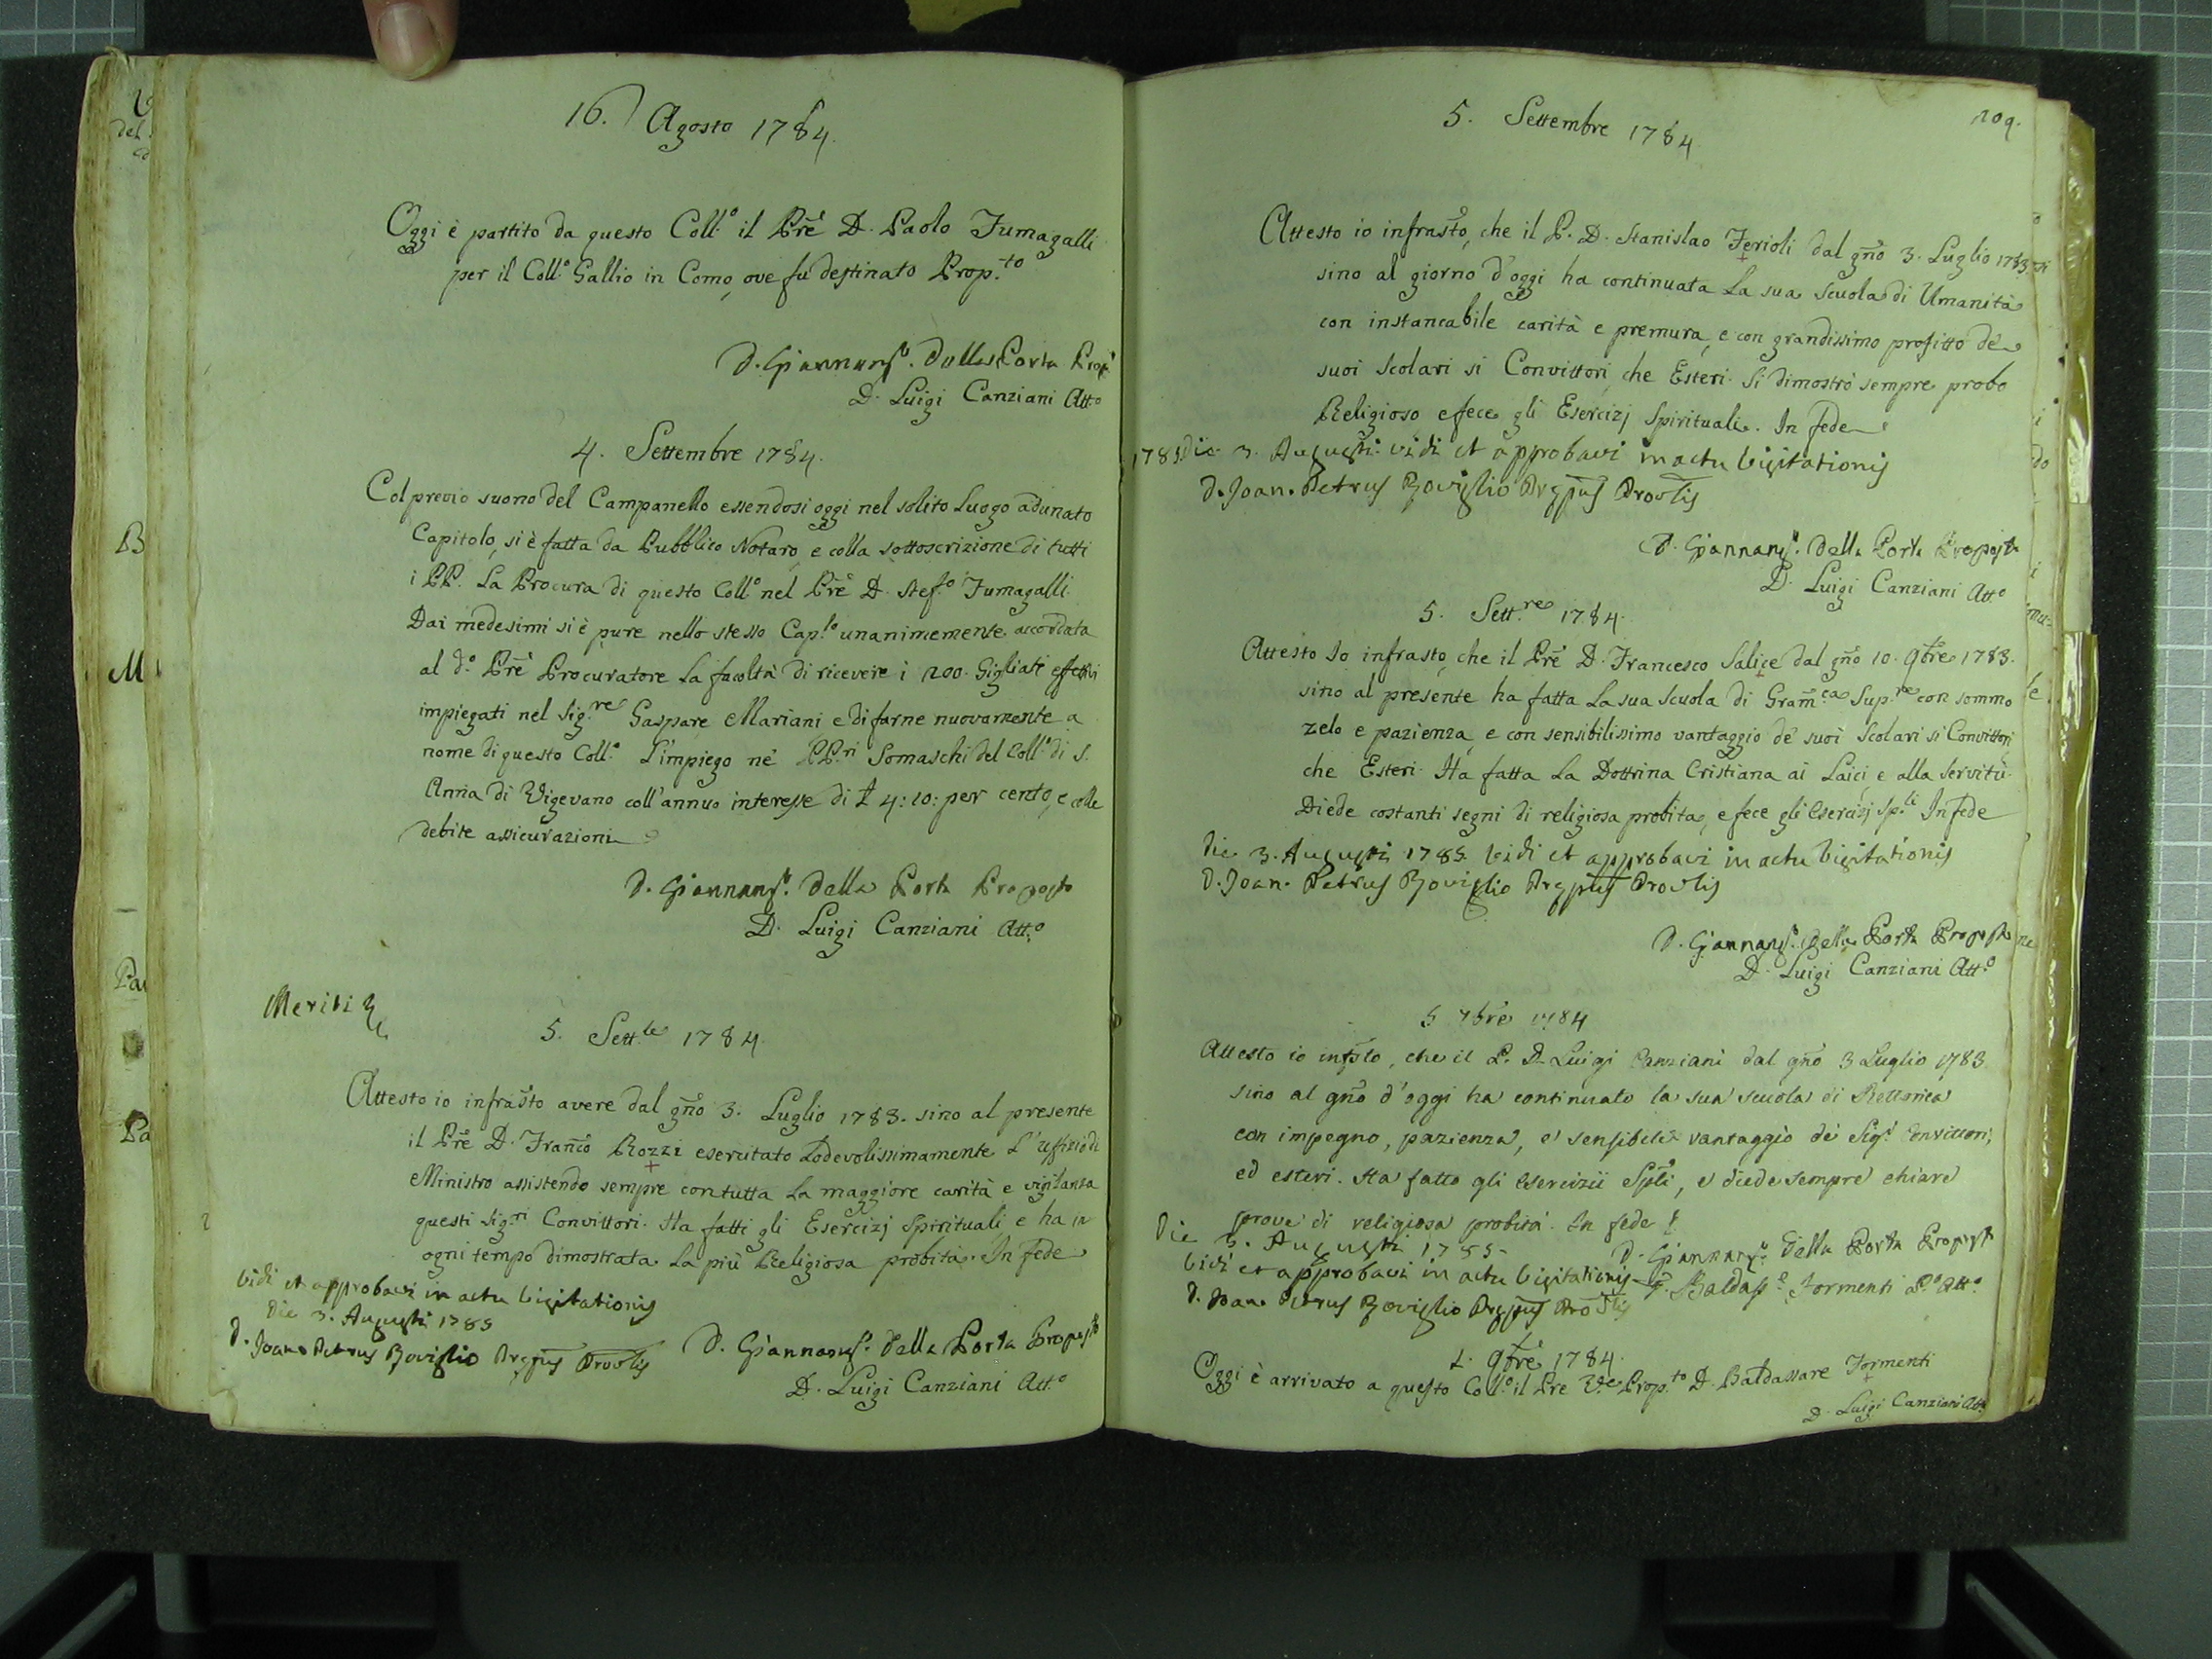 16. Agosto 1784.
Oggi è partito da questo Coll.o il Prẽ D. Paolo Fumagalli
per il Coll.o Gallio in Como, ove fu destinato Prop.to
D. Giannans.o Della Porta Prop.o
D. Luigi Canziani Att.o
4. Settembre 1784.
Col previo suono del Campanello essendosi oggi nel solito Luogo adunato
Capitolo, si è fatta da Pubblico Notaro, e colla sottoscrizione di tutti
i PP. La Procura di questo Coll.o nel Prẽ D. Stef.o Fumagalli.
Dai medesimi si è pure nello stesso Cap.lo unanimemente accordata
al d.o Prẽ Procuratore La facoltà di ricevere i 200. Gigliati effettivi
impiegati nel Sig.re Gaspare Mariani, e di farne nuovamente a
nome di questo Coll.o L'impiego ne' PP.ri Somaschi del Coll.o di S.
Anna di Vigevano coll'annuo interesse di £ 4:10: per cento, e colle
debite assicurazioni
D. Giannans.o Della Porta Proposto
D. Luigi Canziani Att.o
Meriti
5. Sett.re 1784.
Attesto io infrasto avere dal gño 3. Luglio 1783. sino al presente
il Prẽ D. Franco Rozzi esercitato Lodevolissimamente L'uffizio di
Ministro assistendo sempre con tutta La maggiore carità e vigilanza
questi Sig.ri Convittori. Ha fatti gli Esercizj Spirituali e ha in
ogni tempo dimostrata La più Religiosa probità. In fede
Vidi et approbavi in actu Visitationis
Die 3. Augusti 1785
D. Joan. Petrus Roviglio Prẹpus Provlis
D. Giannans.o Della Porta Proposto
D. Luigi Canziani Att.o
5. Settembre 1784
209.
Attesto io infrasto, che il P. D. Stanislao Ferioli dal gño 3. Luglio 1783
sino al giorno d'oggi ha continuata La sua Scuola di Umanità
con instancabile carità e premura, e con grandissimo profitto de'
suoi Scolari sì Convittori, che Esteri. Si dimostrò sempre probo
Religioso, e fece gli Esercizj Spirituali. In fede
1785 Die 3. Augusti vidi et approbavi in actu Visitationis
D. Joan. Petrus Roviglio Prẹpus Provlis
D. Giannans.o Della Porta Proposto
D. Luigi Canziani Att.o
5. Sett.re 1784.
Attesto Io infrasto, che il Prẽ D. Francesco Salice dal gño 10. 9bre 1783.
sino al presente ha fatta La sua Scuola di Gram̃.ca Sup.re con sommo
zelo e pazienza, e con sensibilissimo vantaggio de' suoi Scolari sì Convittori
che Esteri. Ha fatta La Dottrina Cristiana ai Laici, e alla Servitù.
Diede costanti segni di religiosa probità, e fece gli Esercizj Sp.li In fede
Die 3. Augusti 1785. Vidi et approbavi in actu Visitationis
D. Joan. Petrus Roviglio Prẹpus Provlis
D. Giannans.o Della Porta Proposto
D. Luigi Canziani Att.o
5 7bre 1784
Attesto io infsto, che il P. D. Luigi Canziani dal gño 3 Luglio 1783
sino al gño d'oggi ha continuato la sua scuola di Rettorica
con impegno, pazienza, e sensibile vantaggio de' Sig.i Convittori,
ed esteri. Ha fatto gli Esercizii Spli, e diede sempre chiare
prove di religiosa probità. In fede
Die 3. Augusti 1785.
D. Giannans.o Della Porta Proposto
Vidi et approbavi in actu Visitationis
D. Baldass.e Formenti P.o Att.o
D. Joan. Petrus Roviglio Prẹpus Provlis
1. 9bre 1784.
Oggi è arrivato a questo Coll.o il Pre V.e Prop.to D. Baldassare Formenti
D. Luigi Canziani Att.o